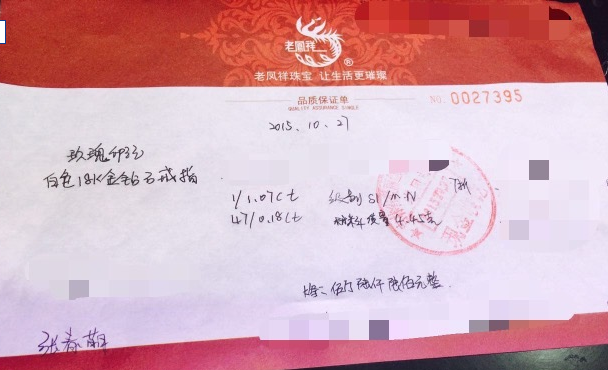 老鳳祥
®
老凤祥珠宝 让生活更璀璨
品质保证单
QUALITY ASSURANCE SINGLE
NO. 0027395
2015.10.27
玫瑰
白色18K金钻石戒指
1/1.07ct 级别 SI/M-N
47/0.18ct 质量 4.45克
伍万陆仟陆佰元整
张春萌